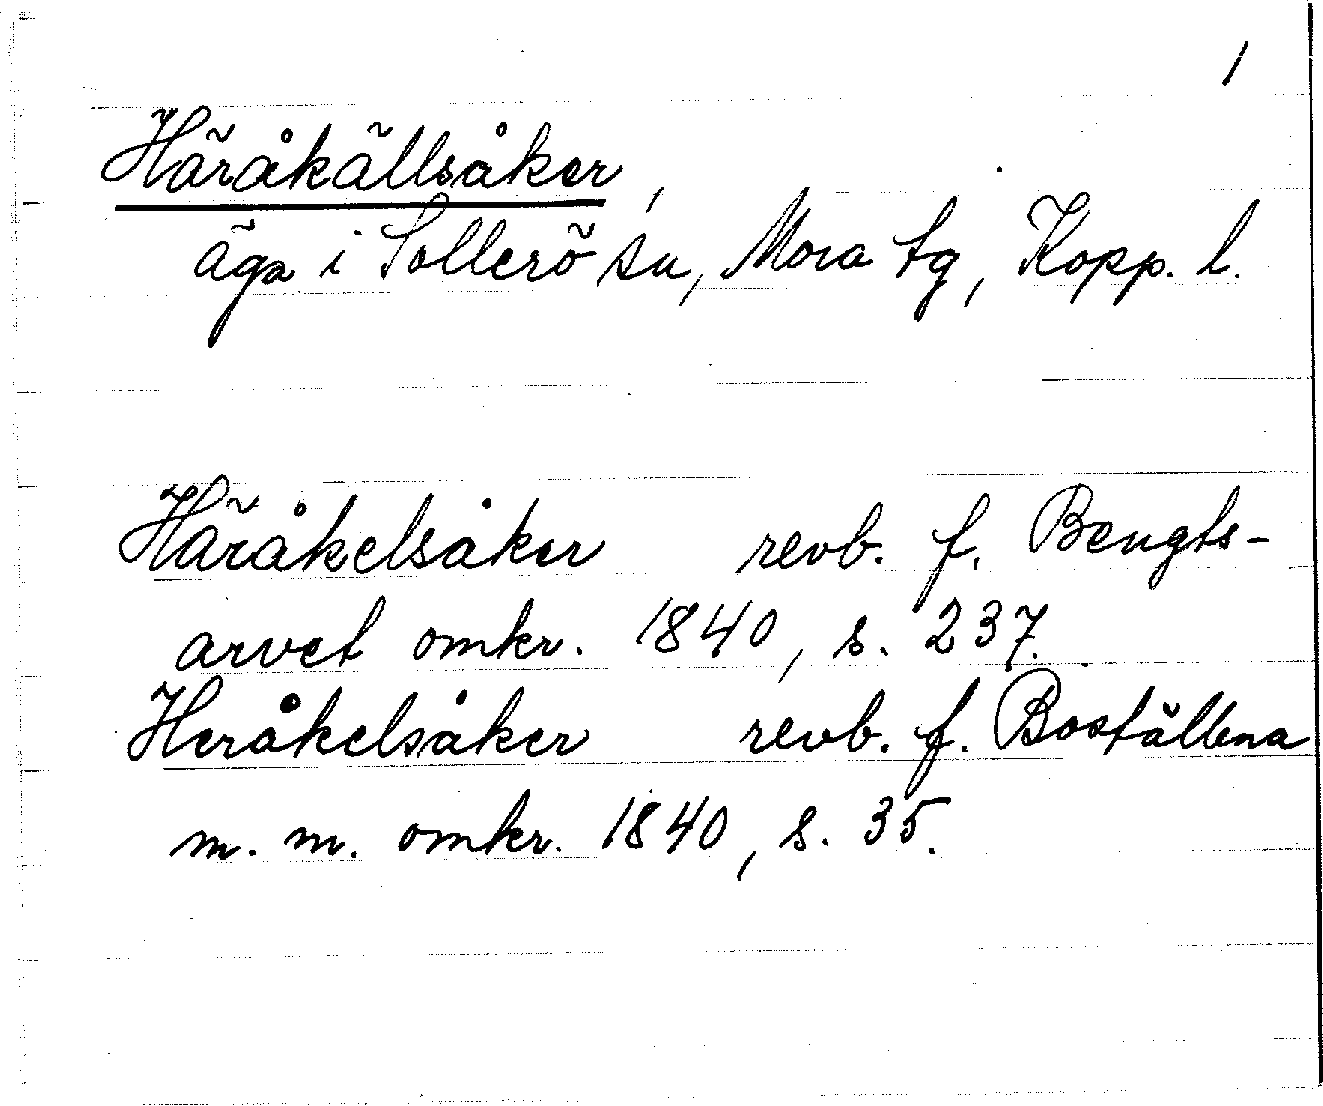 1
Häråkällsåker,
äga i Sollerö sn, Mora tg, Kopp. l.
Häråkelsåker revb. f. Bengts-
arvet omkr. 1840, s. 237.
Heråkelsåker revb. f. Boställena
m. m. omkr. 1840, s. 35.